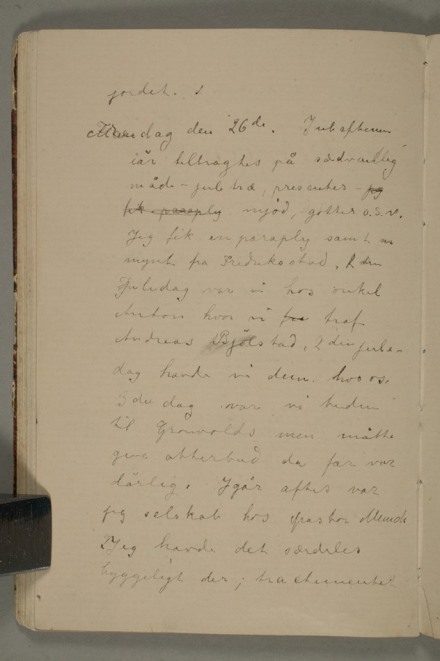 jordet.
Mandag den 26de. Juleaftenen
iår tilbragtes på sædvanlig
måde - jule træ, presenter - jeg
fik paraply mjød, gotter o.s.v.
Jeg fik en paraply samt en
mynt fra Fredriksstad. 1 ste
Juledag var vi hos onkel
Anton hvor vi traf
Andreas Bjølstad, 2 den jule-
dag havde vi dem hos os.
3 die dag var vi buden
til Grønvolds men måtte
give atterbud da far var
dårlig. Igår aftes var
jeg selskab hos
Jeg havde det særdeles
hyggeligt der; tractementet